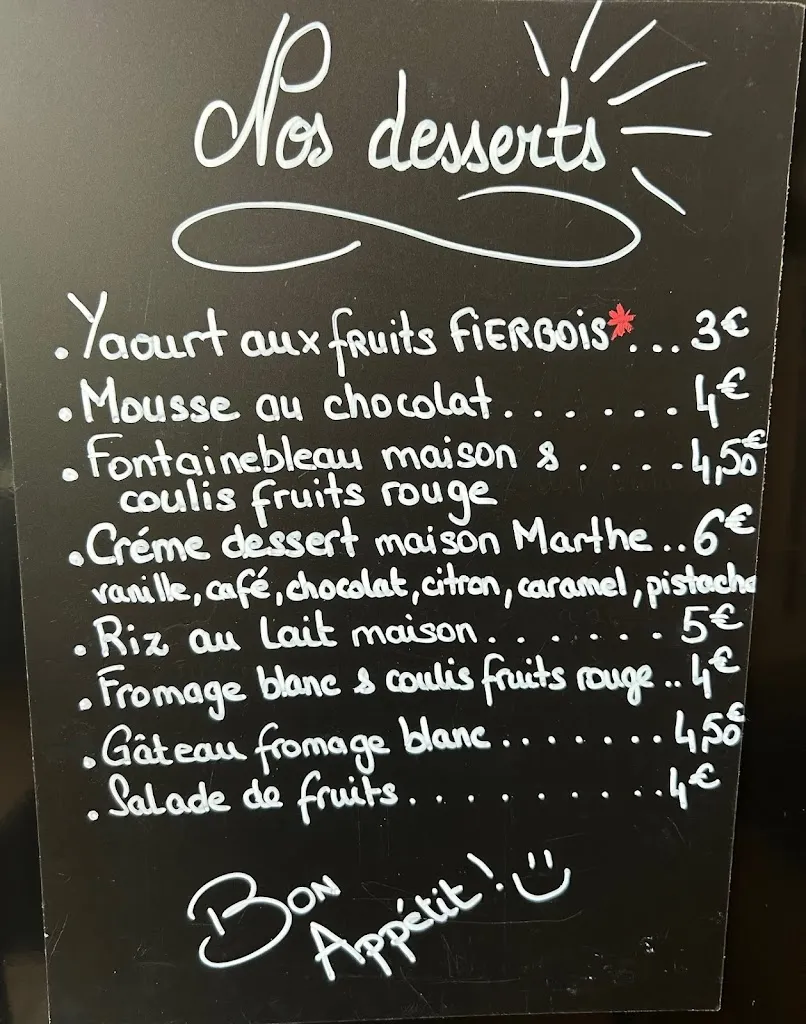 Nos desserts
• Yaourt aux fruits FIERBOIS*... 3€
• Mousse au chocolat....... 4€
• Fontainebleau maison & ..... 4,50€
coulis fruits rouge
• Créme dessert maison Marthe.. 6€
vanille, café, chocolat, citron, caramel, pistache
• Riz au lait maison....... 5€
• Fromage blanc & coulis fruits rouge.. 4€
• Gâteau fromage blanc....... 4,50€
• Salade de fruits.......... 4€
BON
Appétit!